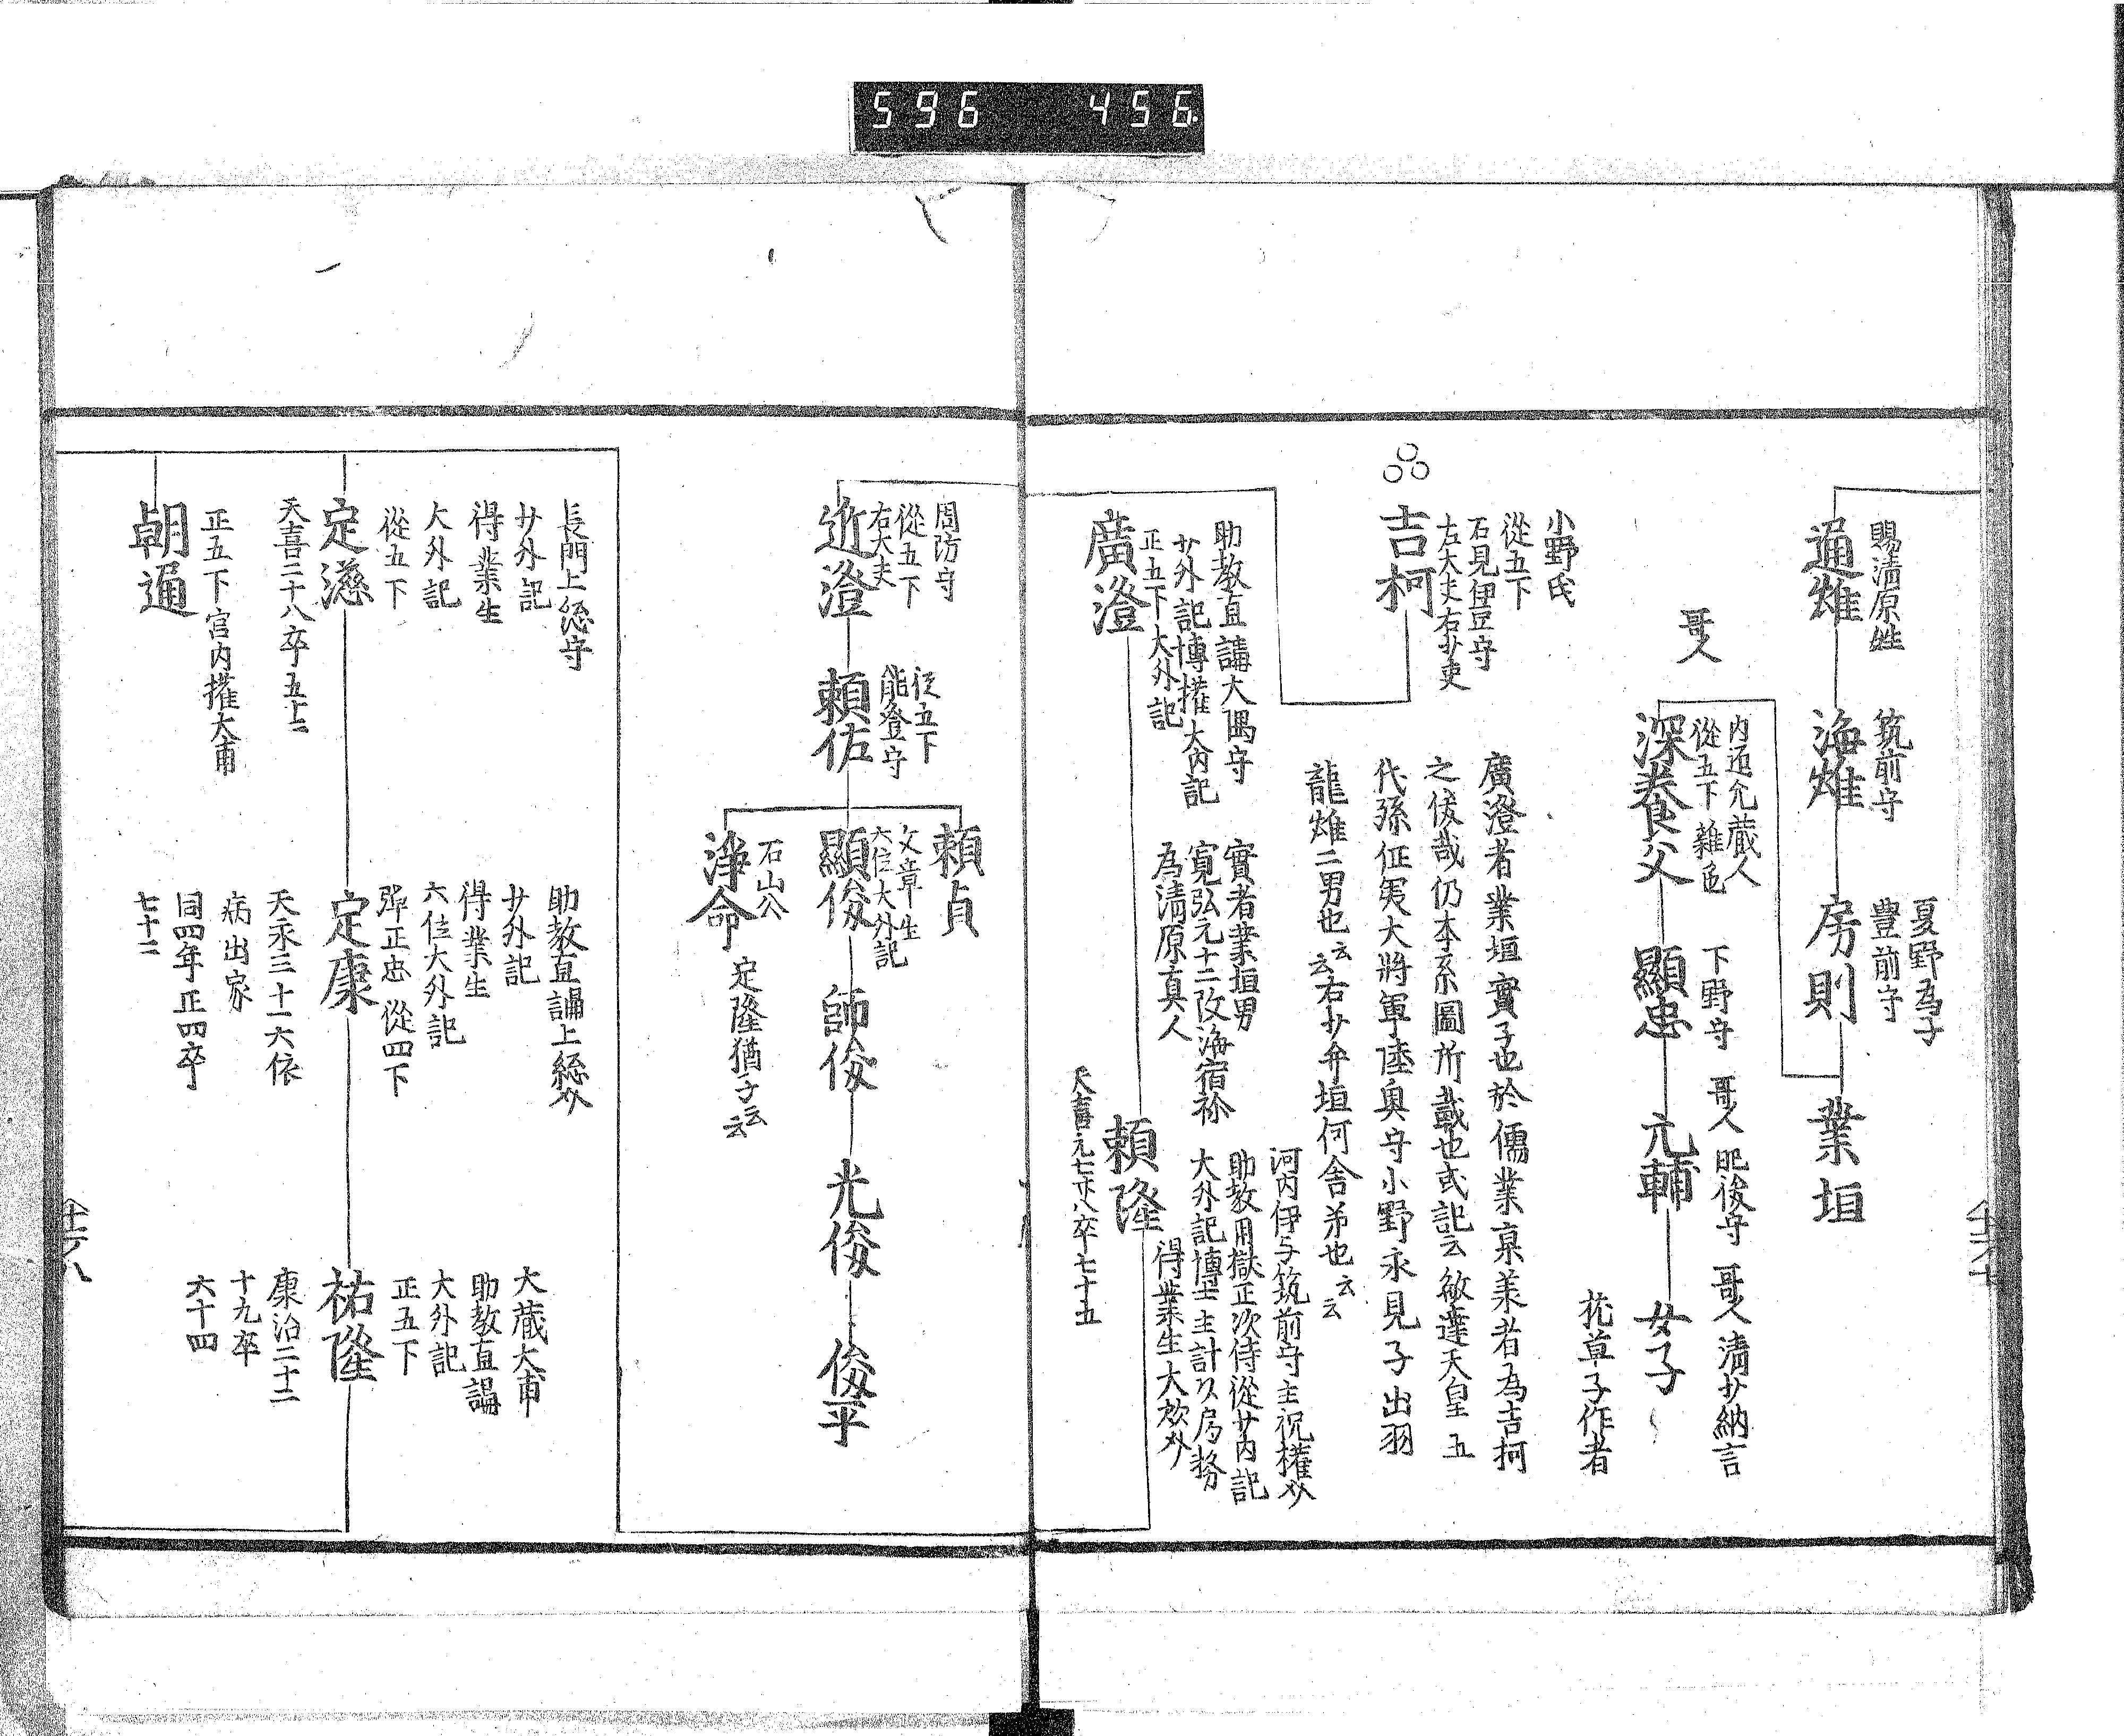 596 456
賜清原姓
通雄
筑前守
海雄
夏野為子
豊前守
房則
業垣
哥人
内匠允蔵人
從五下雜色
深養父
下野守
顯忠
哥人 肥後守
元輔
哥人 清少納言
女子
枕草子作者
小野氏
從五下
石見伊豆守
左大吏右少吏
吉柯
廣澄者業垣實子也於儒業稟業者為吉柯
之後哉仍本系圖所載也或記云敏達天皇五
代孫征夷大將軍陸奥守小野永見子出羽
龍雄二男也云云右少弁垣何舎弟也云云
助教直講大隅守
少外記博權大内記
正五下大外記
廣澄
實者業垣男
寛弘元十二改海宿祢
為清原真人
河内伊与筑前守主祝權
助教用獄正次侍從少内記
大外記博士主計以局務
得業生大
頼隆
天喜元七廿八卒七十五
周防守
從五下
右大吏
近澄
從五下
能登守
頼佐
頼貞
文章生
六位大外記
顯俊
石山
淨命
定隆猶子云云
師俊
光俊
俊平
長門上総守
少外記
得業生
大外記
從五下
定滋
天喜二十八卒五十二
助教直講上総
少外記
得業生
六位大外記
弾正忠 從四下
定康
天永三十六依
病出家
同四年正四卒
七十二
大蔵大甫
助教直講
大外記
正五下
祐隆
康治二十二
十九卒
六十四
正五下宮内權大甫
朝通